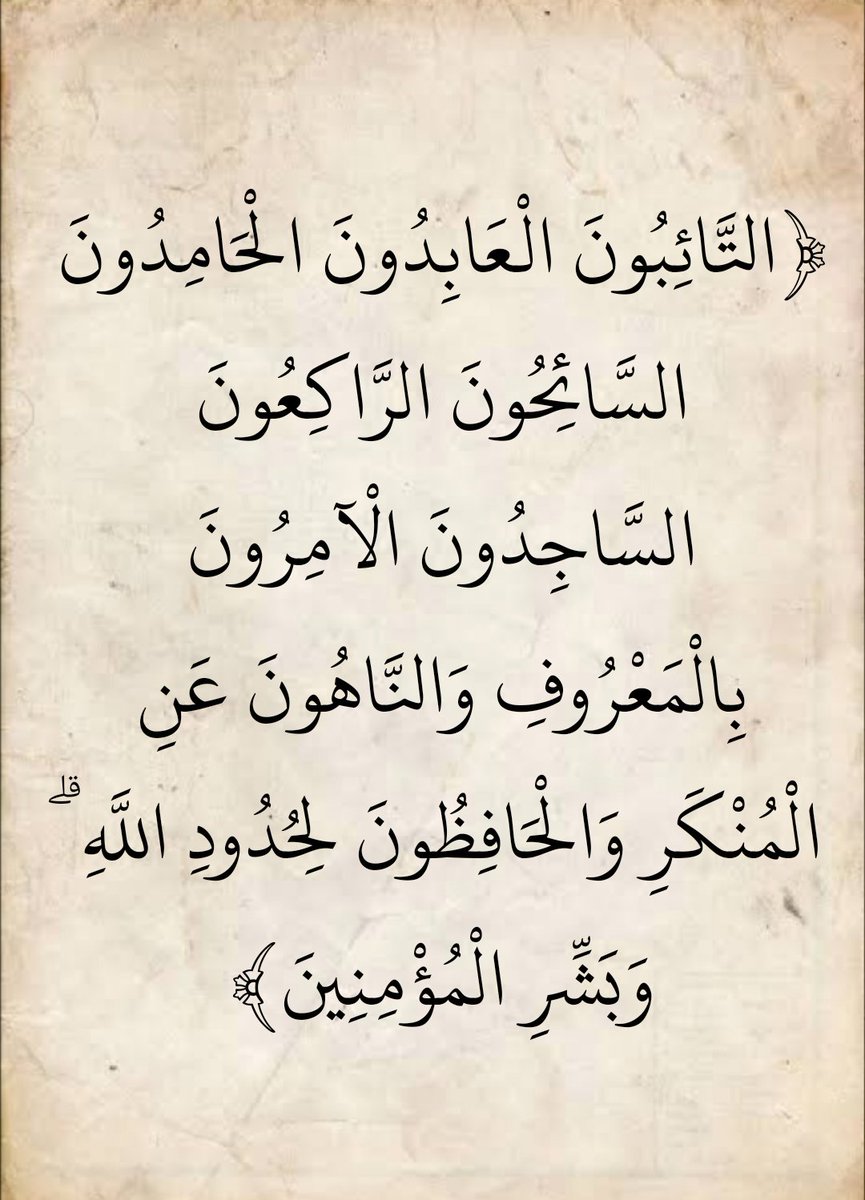 ﴿التَّائِبُونَ الْعَابِدُونَ الْحَامِدُونَ
السَّائِحُونَ الرَّاكِعُونَ
السَّاجِدُونَ الْآمِرُونَ
بِالْمَعْرُوفِ وَالنَّاهُونَ عَنِ
الْمُنْكَرِ وَالْحَافِظُونَ لِحُدُودِ اللَّهِ ۗ
وَبَشِّرِ الْمُؤْمِنِينَ﴾